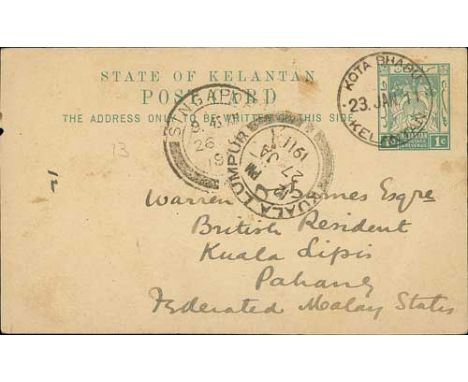 STATE OF KELANTAN
POSTCARD
THE ADDRESS ONLY TO BE WRITTEN ON THIS SIDE
KOTA BHARU
23 JAN 11
KELANTAN
1c
SINGAPORE
26
19
KUALA LUMPUR
PM
27 JA
1911
13
Warren D Barnes Esqre
British Resident
Kuala Lipis
Pahang
Federated Malay States